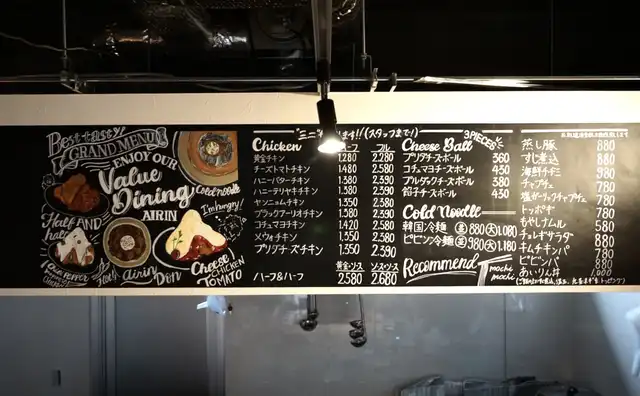 Best tasty!
GRAND MENU
ENJOY OUR
Value
Dining
AIRIN
Cold noodle
I'm hungry!
Half AND
half
Airin
Don
Cheese
CHICKEN
TOMATO
Chicken ハーフ フル
黄金チキン 1.280 2.280
チーズトマトチキン 1.380 2.380
ハニーバターチキン 1.380 2.390
ハニーテリヤキチキン 1.390
ヤンニョムチキン 1.350 2.380
ブラックフーリチキン 1.580 2.390
コチュマヨチキン 1.420 2.580
メウォチキン 1.350 2.380
プリングチーズチキン 1.350 2.390
黄金・ソース ソース・ソース
ハーフ&ハーフ 2.580 2.680
Cheese Ball 3PIECES
プリングチーズボール 360
コチュマヨチーズボール 430
ブルダックチーズボール 380
餡子チーズボール 430
Cold Noodle
韓国冷麺 880 大 1.080
ビビン冷麺 980 大 1.180
Recommend
mochi
mochi
蒸し豚 880
すじ煮込 880
海鮮チヂミ 980
チャプチェ 780
塩ガーリックチャプチェ 780
トッポギ 780
もやしナムル 580
チョレギサラダ 880
キムチキンパ 780
ビビンパ 880
あいりん丼